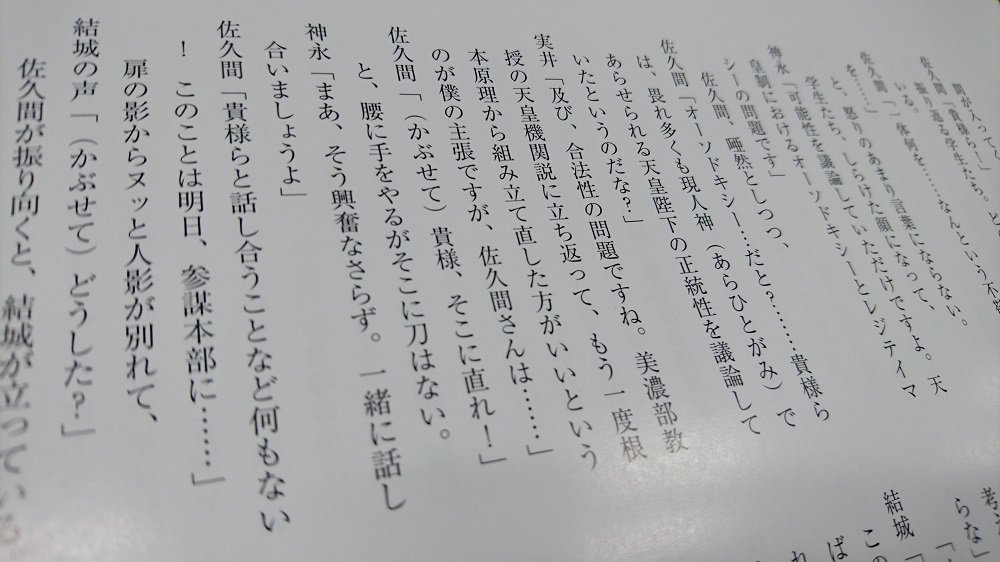 間が入って
佐久間「貴様ら！」
振り返る学生たち。
いる。
佐久間「一体何を……なんという不
を……」
と、怒りのあまり言葉にならない。
学生たち、しらけた顔になって、
神永「可能性を議論していただけですよ。天
皇制におけるオーソドキシーとレジティマ
シーの問題です」
佐久間、唖然としつつ、
佐久間「オーソドキシー…だと？……貴様ら
は、畏れ多くも現人神（あらひとがみ）で
あらせられる天皇陛下の正統性を議論して
いたというのだな？」
実井「及び、合法性の問題ですね。美濃部教
授の天皇機関説に立ち返って、もう一度根
本原理から組み立て直した方がいいという
のが僕の主張ですが、佐久間さんは……」
佐久間「（かぶせて）貴様、そこに直れ！」
と、腰に手をやるがそこに刀はない。
神永「まあ、そう興奮なさらず。一緒に話し
合いましょうよ」
佐久間「貴様らと話し合うことなど何もない
！　このことは明日、参謀本部に……」
扉の影からヌッと人影が別れて、
結城の声「（かぶせて）どうした？」
佐久間が振り向くと、結城が立っている
考え
らな」
結城「
この
ば
れ